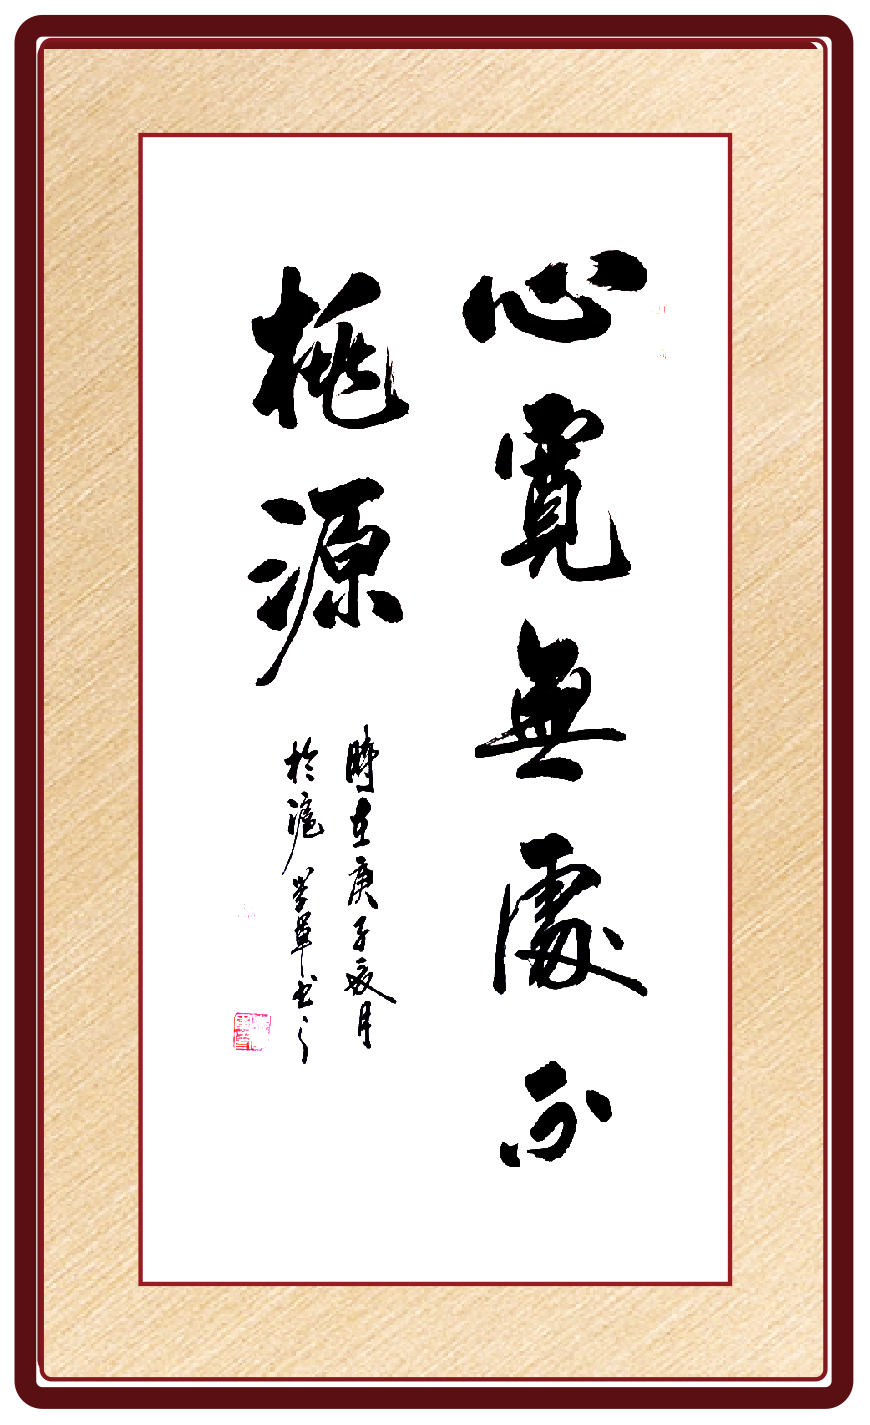 心寬無處不
桃源
時在庚子夏月
於滬 軍書